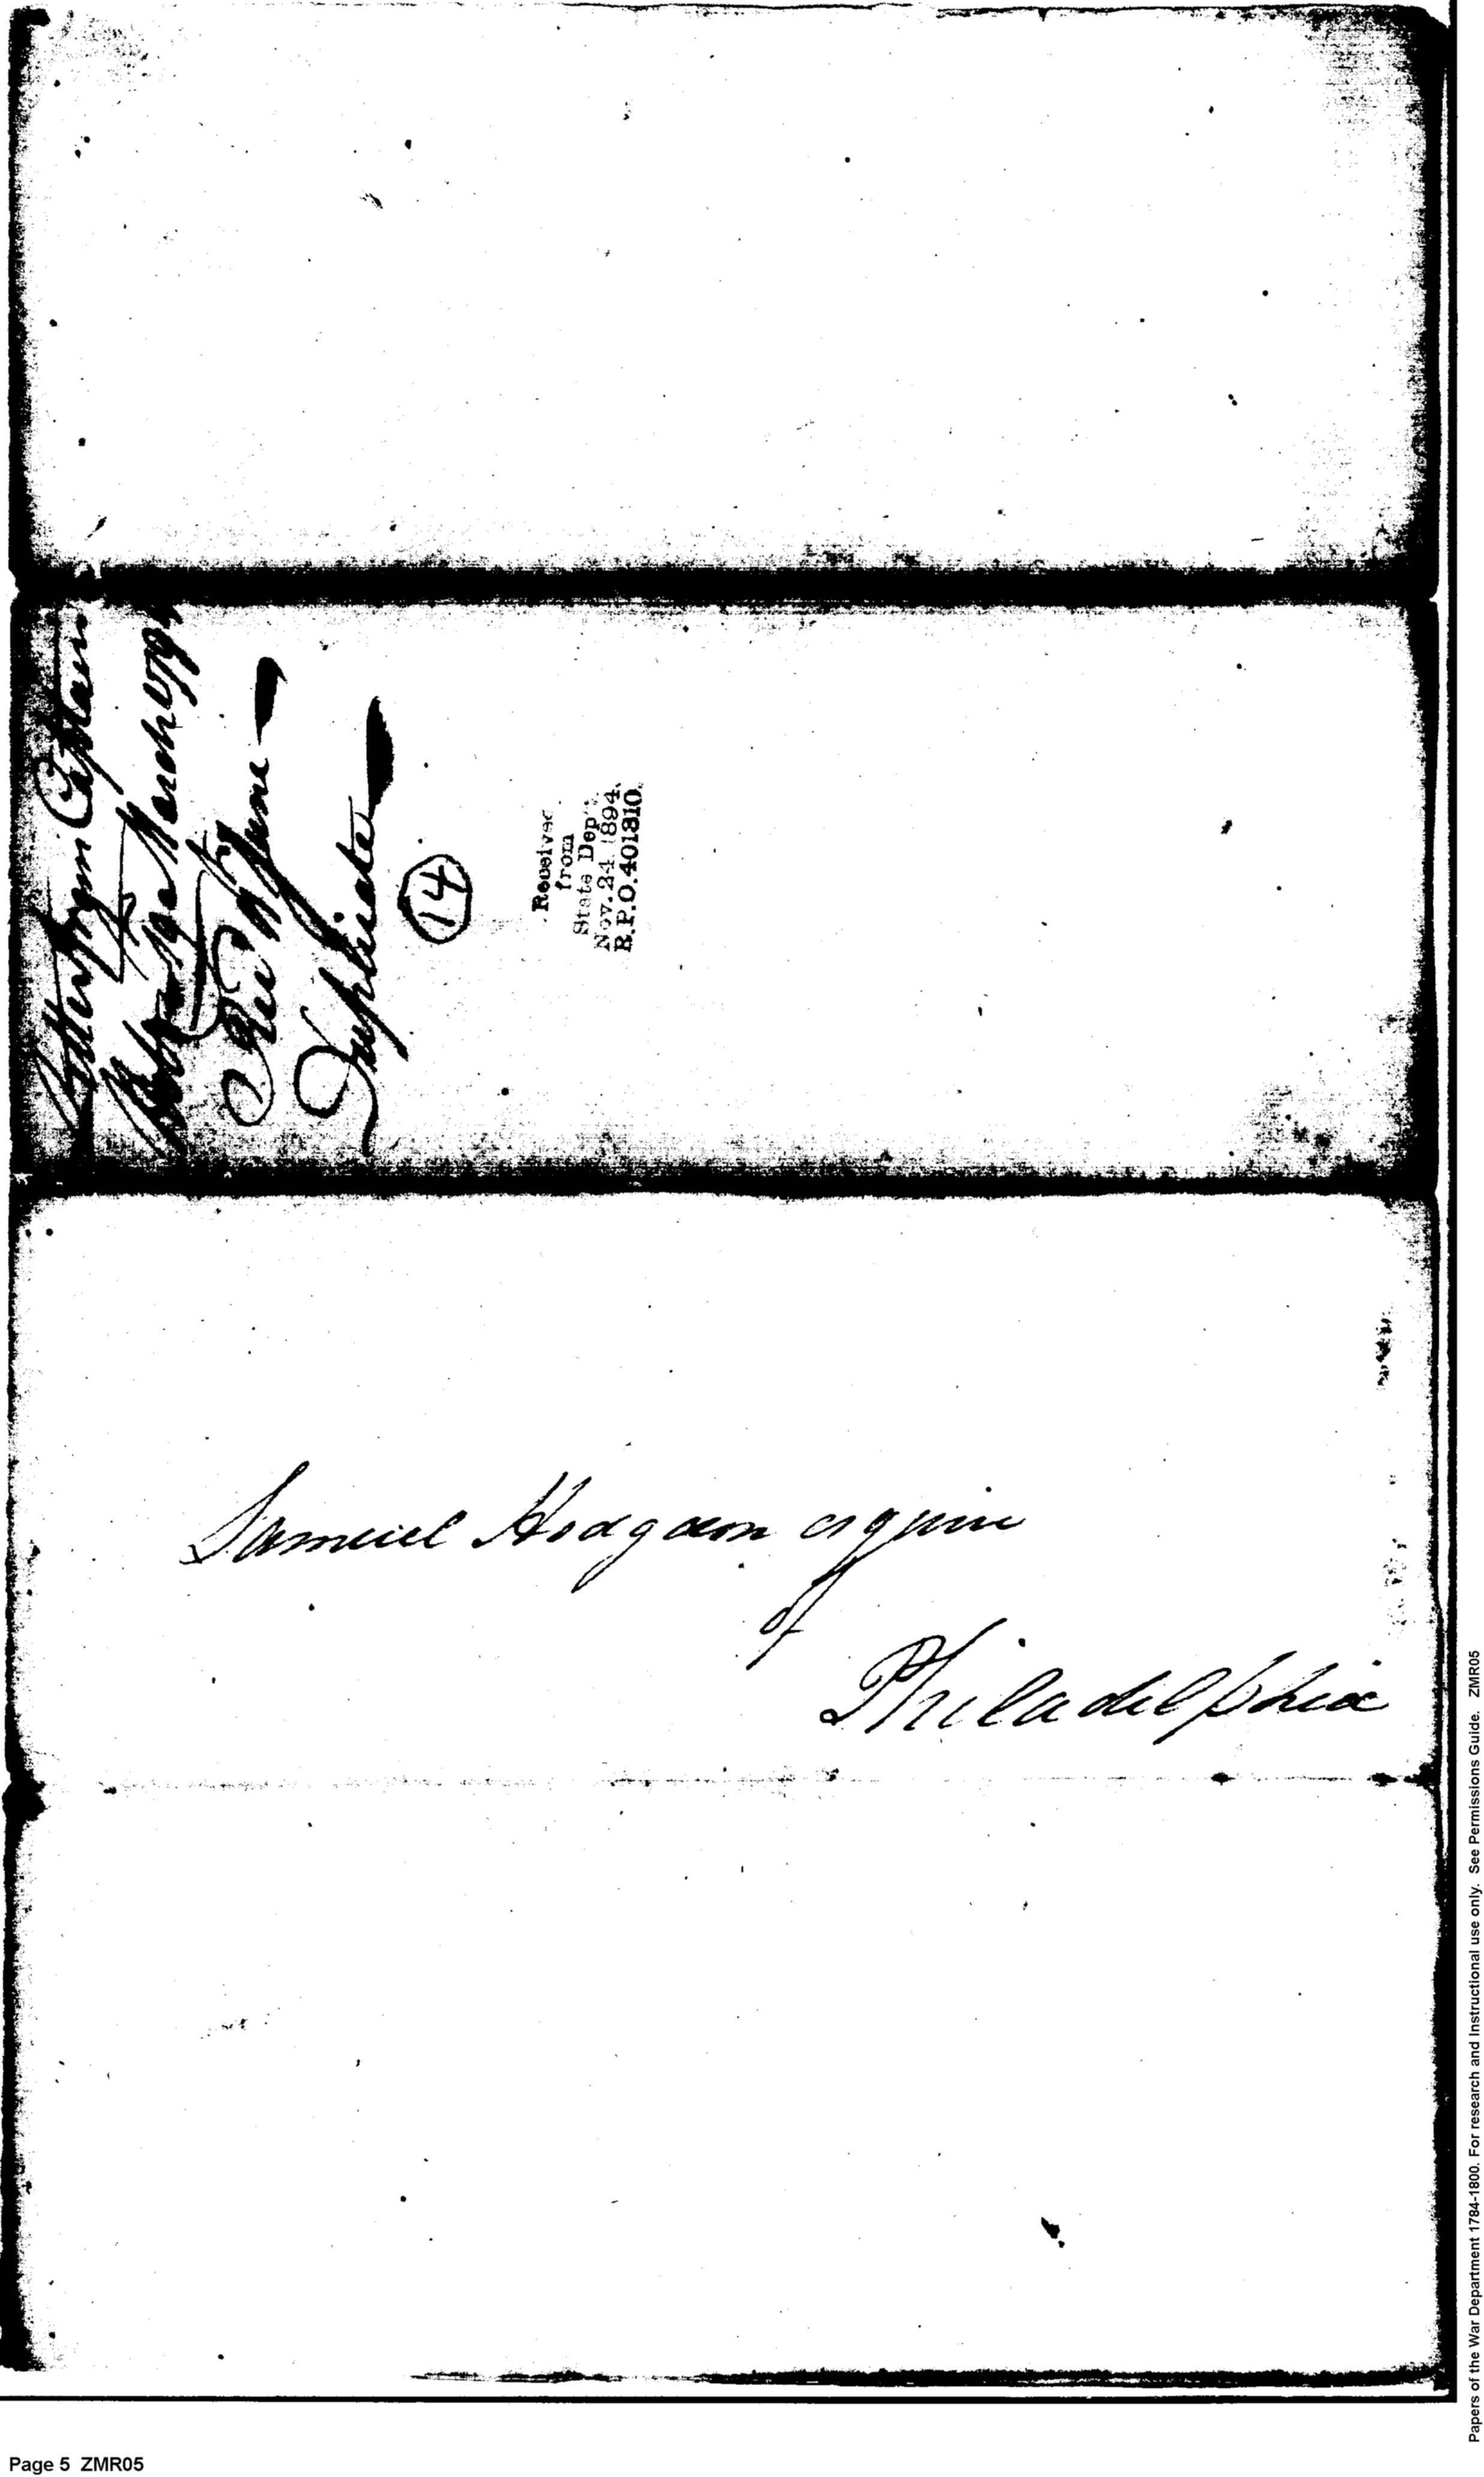 Letter from Captain
19th March 179
Rec'd June
Duplicate
14
Received
from
State Dep't.
Nov. 24 1894.
R.P.O. 401810.
Samuel Hodgdon esquire
of
Philadelphia
Papers of the War Department 1784-1800. For research and Instructional use only. See Permissions Guide. ZMR05
Page 5 ZMR05